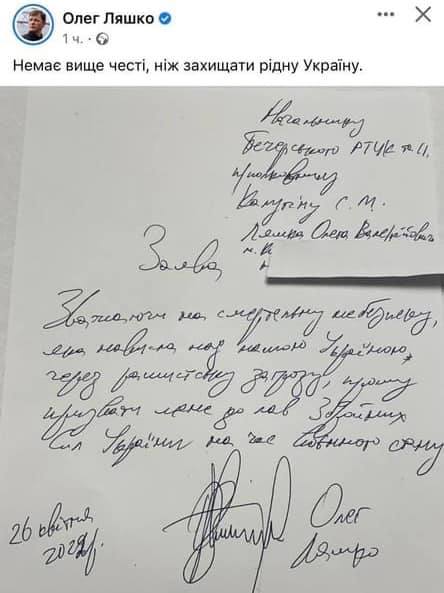 Олег Ляшко
1 ч.
Немає вище честі, ніж захищати рідну Україну.
Начальнику
Печерського РТЦК та СП,
підполковнику
С. М.
Ляшка Олега Валерійовича
м. К
Заява
Зважаючи на смертельну небезпеку,
яка нависла над нашою Україною,
через рашистську загрозу, прошу
призвати мене до лав Збройних
Сил України на час воєнного стану
26 квітня
2022р.
Олег
Ляшко